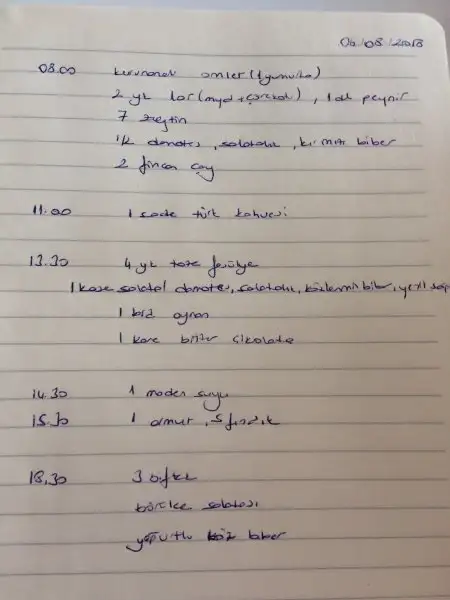 06/08/2018
08.00 kavunanak omlet (1 yumurta)
2 yk lor (mayd + çörekot), 1 dl peynir
7 zeytin
1/2 domates, salatalık, kırmızı biber
2 fincan çay
11.00 1 sade türk kahvesi
13.30 4 yk taze fasülye
1 kase salata domates, salatalık, közlenmiş biber, yeşil soğ
1 bard ayran
1 kare bitter çikolata
14.30 1 maden suyu
15.30 1 armut, 5 fındık
18.30 3 biftek
börülce salatası
yoğurtlu köz biber